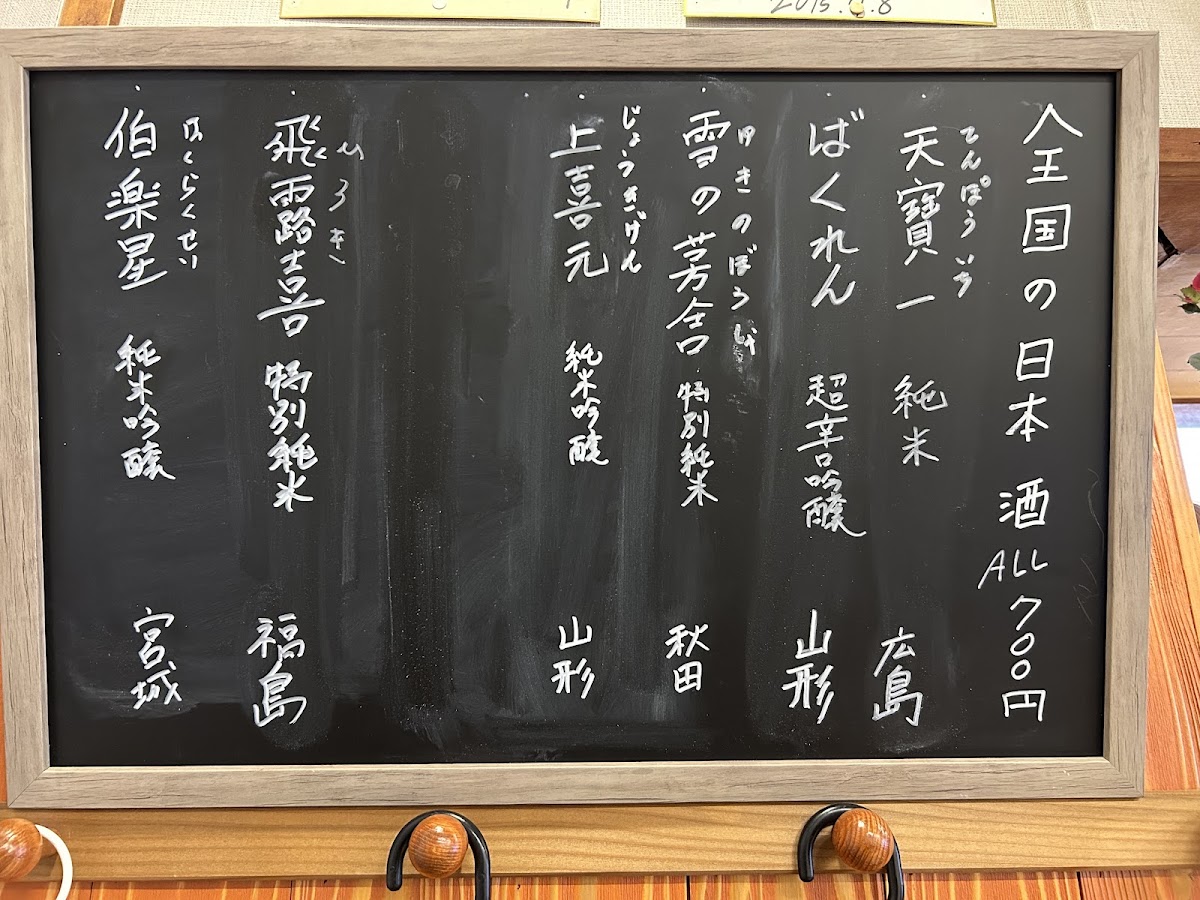 全国の日本酒 ALL 700円
てんぽういち
天寶一 純米 広島
ばくれん 超辛口吟醸 山形
ゆきのぼうしゃ
雪の茅舎 特別純米 秋田
じょうきげん
上喜元 純米吟醸 山形
ひろき
飛露喜 特別純米 福島
はくらくせい
伯楽星 純米吟醸 宮城